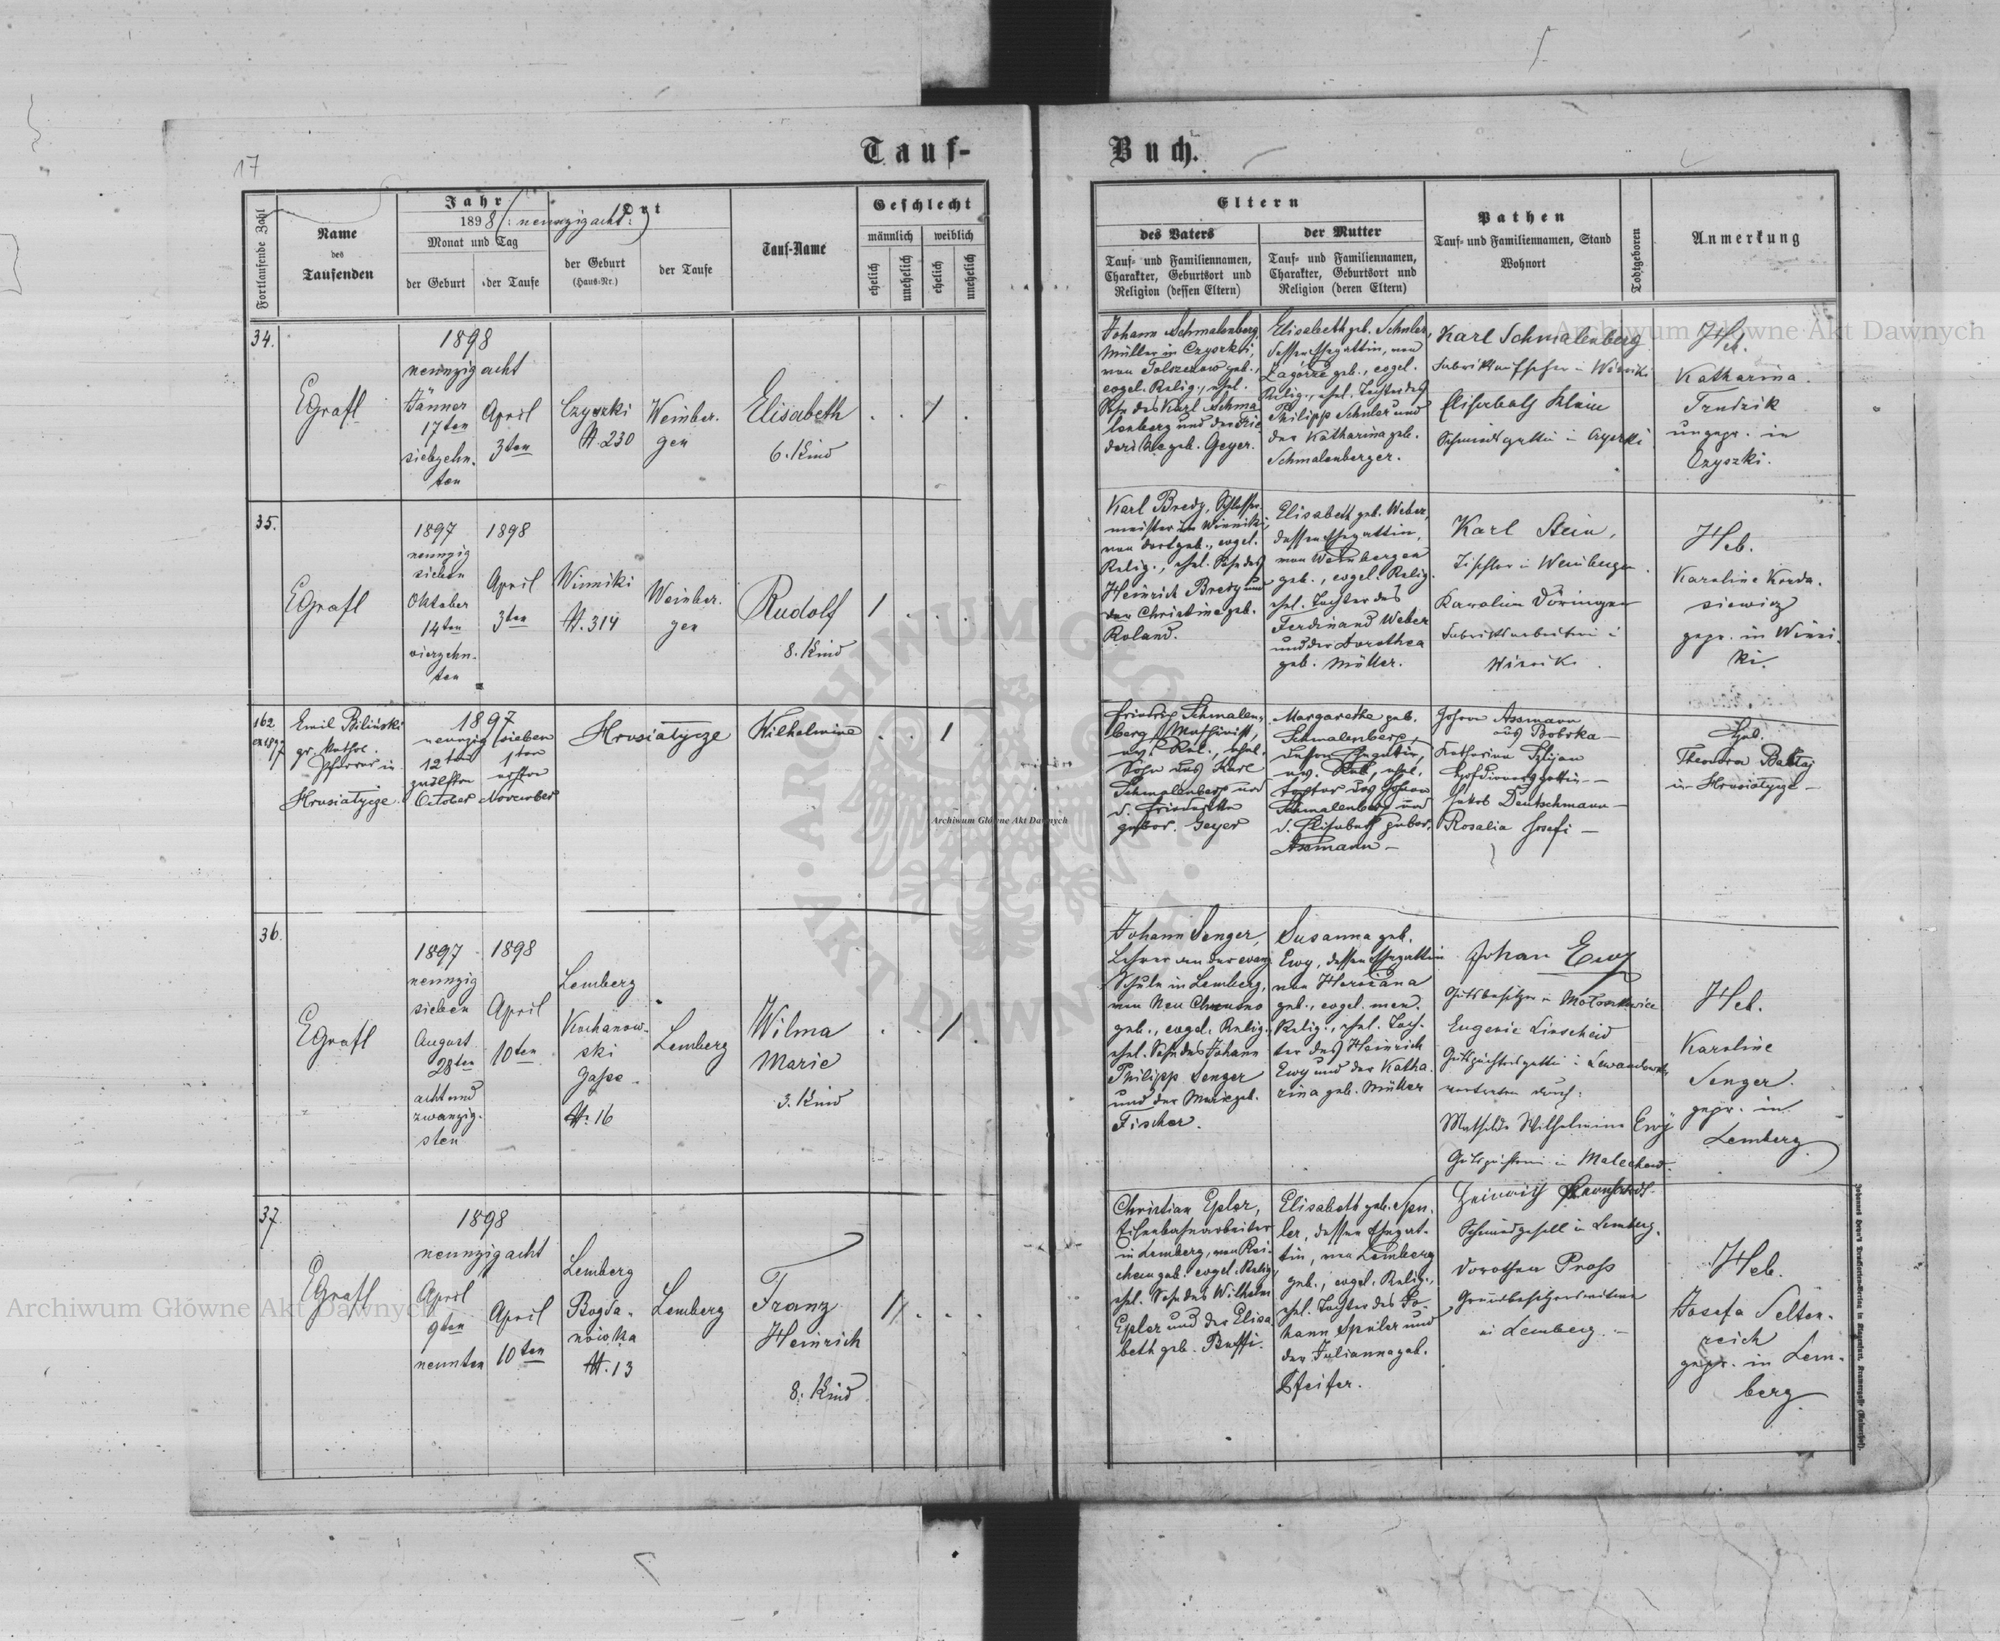 17
Tauf-
Buch.
Fortlaufende Zahl
Name
des
Taufenden
Jahr
1898 (: neunzig acht :)
Monat und Tag
der Geburt
der Taufe
Ort
der Geburt
(Haus-Nr.)
der Taufe
Tauf-Name
Geschlecht
männlich
weiblich
ehelich
unehelich
ehelich
unehelich
Eltern
des Vaters
Tauf- und Familiennamen,
Charakter, Geburtsort und
Religion (dessen Eltern)
der Mutter
Tauf- und Familiennamen,
Charakter, Geburtsort und
Religion (deren Eltern)
Pathen
Tauf- und Familiennamen, Stand
Wohnort
Todtgeboren
Anmerkung
34.
EGrafl
1898
neunzig acht
Jänner
17ten
siebzehn-
ten
April
3ten
Czyszki
N. 230
Weinber-
gen
Elisabeth
6. Kind
1
Johann Schmalenberg,
Müller in Czyszki,
geb.,
evgel. Relig., ehel.
Sohn des Karl Schma
lenberg und der Frie
derike geb. Geyer.
Elisabeth geb. Schuler,
dessen Ehegattin, von
Zagórze geb., evgel.
Relig., ehel. Tochter des
Philipp Schuler und
der Katharina geb.
Schmalenberger.
Karl Schmalenberg
Fabriksaufseher in Winniki
Elisabeth Klein
Schmieds gattin in Czyszki
Heb.
Katharina
Trudzik
ungepr. in
Czyszki.
35.
EGrafl
1897
neunzig
sieben
Oktober
14ten
vierzehn-
ten
1898
April
3ten
Winniki
N. 314
Weinber-
gen
Rudolf
8. Kind
1
Karl Bredy, Schlosser
meister in Winniki,
von dort geb., evgel.
Relig., ehel. Sohn des
Heinrich Bredy und
der Christine geb.
Roland.
Elisabeth geb. Weber,
dessen Ehegattin,
von Weinbergen
geb., evgel. Relig.
ehel. Tochter des
Ferdinand Weber
und der Dorothea
geb. Müller.
Karl Stein,
Tischler in Weinbergen
Karolina Döringer
Fabriksarbeiterin in
Winniki.
Heb.
Karoline Korda-
siewicz
gepr. in Winni-
ki.
162
ex 1897
Emil Biliński
gr. kathol.
Pfarrer in
Hrusiatycze
1897
neunzig sieben
12ten
zwölften
October
1ten
ersten
November
Hrusiatycze
Wilhelmine
1
Friedrich Schmalen-
berg, Maschinist,
ev. Rel., ehel.
Sohn des Karl
Schmalenberg und
d. Friederike
gebor. Geyer
Margarethe geb.
Schmalenberg,
dessen Ehegattin,
ev. Rel., ehel.
Tochter des Johann
Schmalenberg und
d. Elisabeth gebor.
Assmann —
Johann Assmann
aus Bobrka —
Katharina
Jakob Deutschmann —
Rosalia Josefi —
Heb.
Theodora
in Hrusiatycze —
36.
EGrafl
1897
neunzig
sieben
August
28ten
acht und
zwanzig-
sten
1898
April
10ten
Lemberg
Kochanow-
ski
Gasse
N. 16
Lemberg
Wilma
Marie
3. Kind
1
Johann Senger,
Lehrer an der evang.
Schule in Lemberg,
von Neu Chrusno
geb., evgel. Relig.,
ehel. Sohn des Johann
Philipp Senger
und der Marie geb.
Fischer.
Susanna geb.
Ewy, dessen Ehegattin
von Horożana
geb., evgel. men.
Relig., ehel. Toch-
ter des Heinrich
Ewy und der Katha-
rina geb. Müller
Johann Ewy
Gutsbesitzer in
Eugenie Linscheid
Gutspächtersgattin in
vertreten durch:
Mathilde Wilhelmine Ewy
Gutspächterin in Malechow.
Heb.
Karoline
Senger.
gepr. in
Lemberg
37.
EGrafl
1898
neunzig acht
April
9ten
neunten
April
10ten
Lemberg
Bogda-
nówka
N. 13
Lemberg
Franz
Heinrich
8. Kind
1
Christian Epler,
Eisenbahnarbeiter
in Lemberg, von Rei-
chem geb. evgel. Relig.,
ehel. Sohn des Wilhelm
Epler und der Elisa
beth geb. Buffi.
Elisabeth geb. Spu-
ler, dessen Ehegat-
tin, von Lemberg
geb., evgel. Relig.,
ehel. Tochter des Jo-
hann Spuler und
der Julianna geb.
Pfeifer.
Heinrich
Schmiedgesell in Lemberg.
Dorothea Pross
Grundbesitzerswitwe
in Lemberg. —
Heb.
Josefa Selten-
reich
gepr. in Lem-
berg
Archiwum Główne Akt Dawnych
Archiwum Główne Akt Dawnych
Archiwum Główne Akt Dawnych
ARCHIWUM GŁÓWNE AKT DAWNYCH